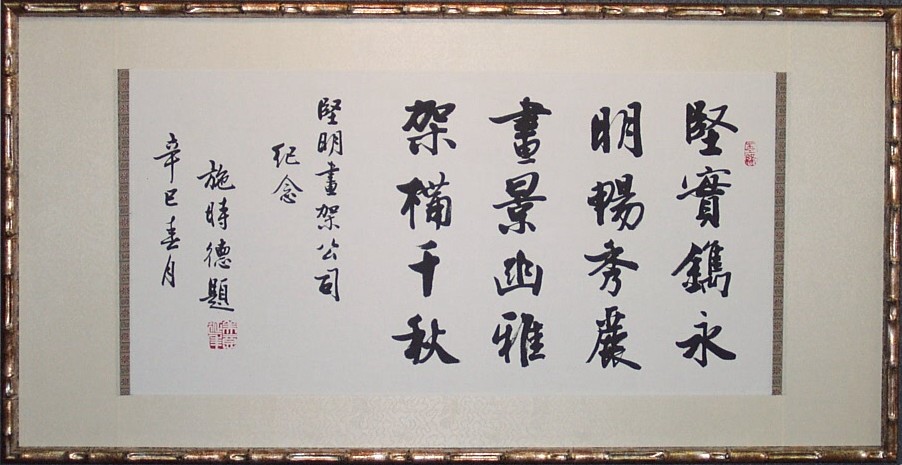 堅實鐫永
明暢秀麗
畫景幽雅
架構千秋
堅明畫架公司
紀念
施時德題
辛巳春月